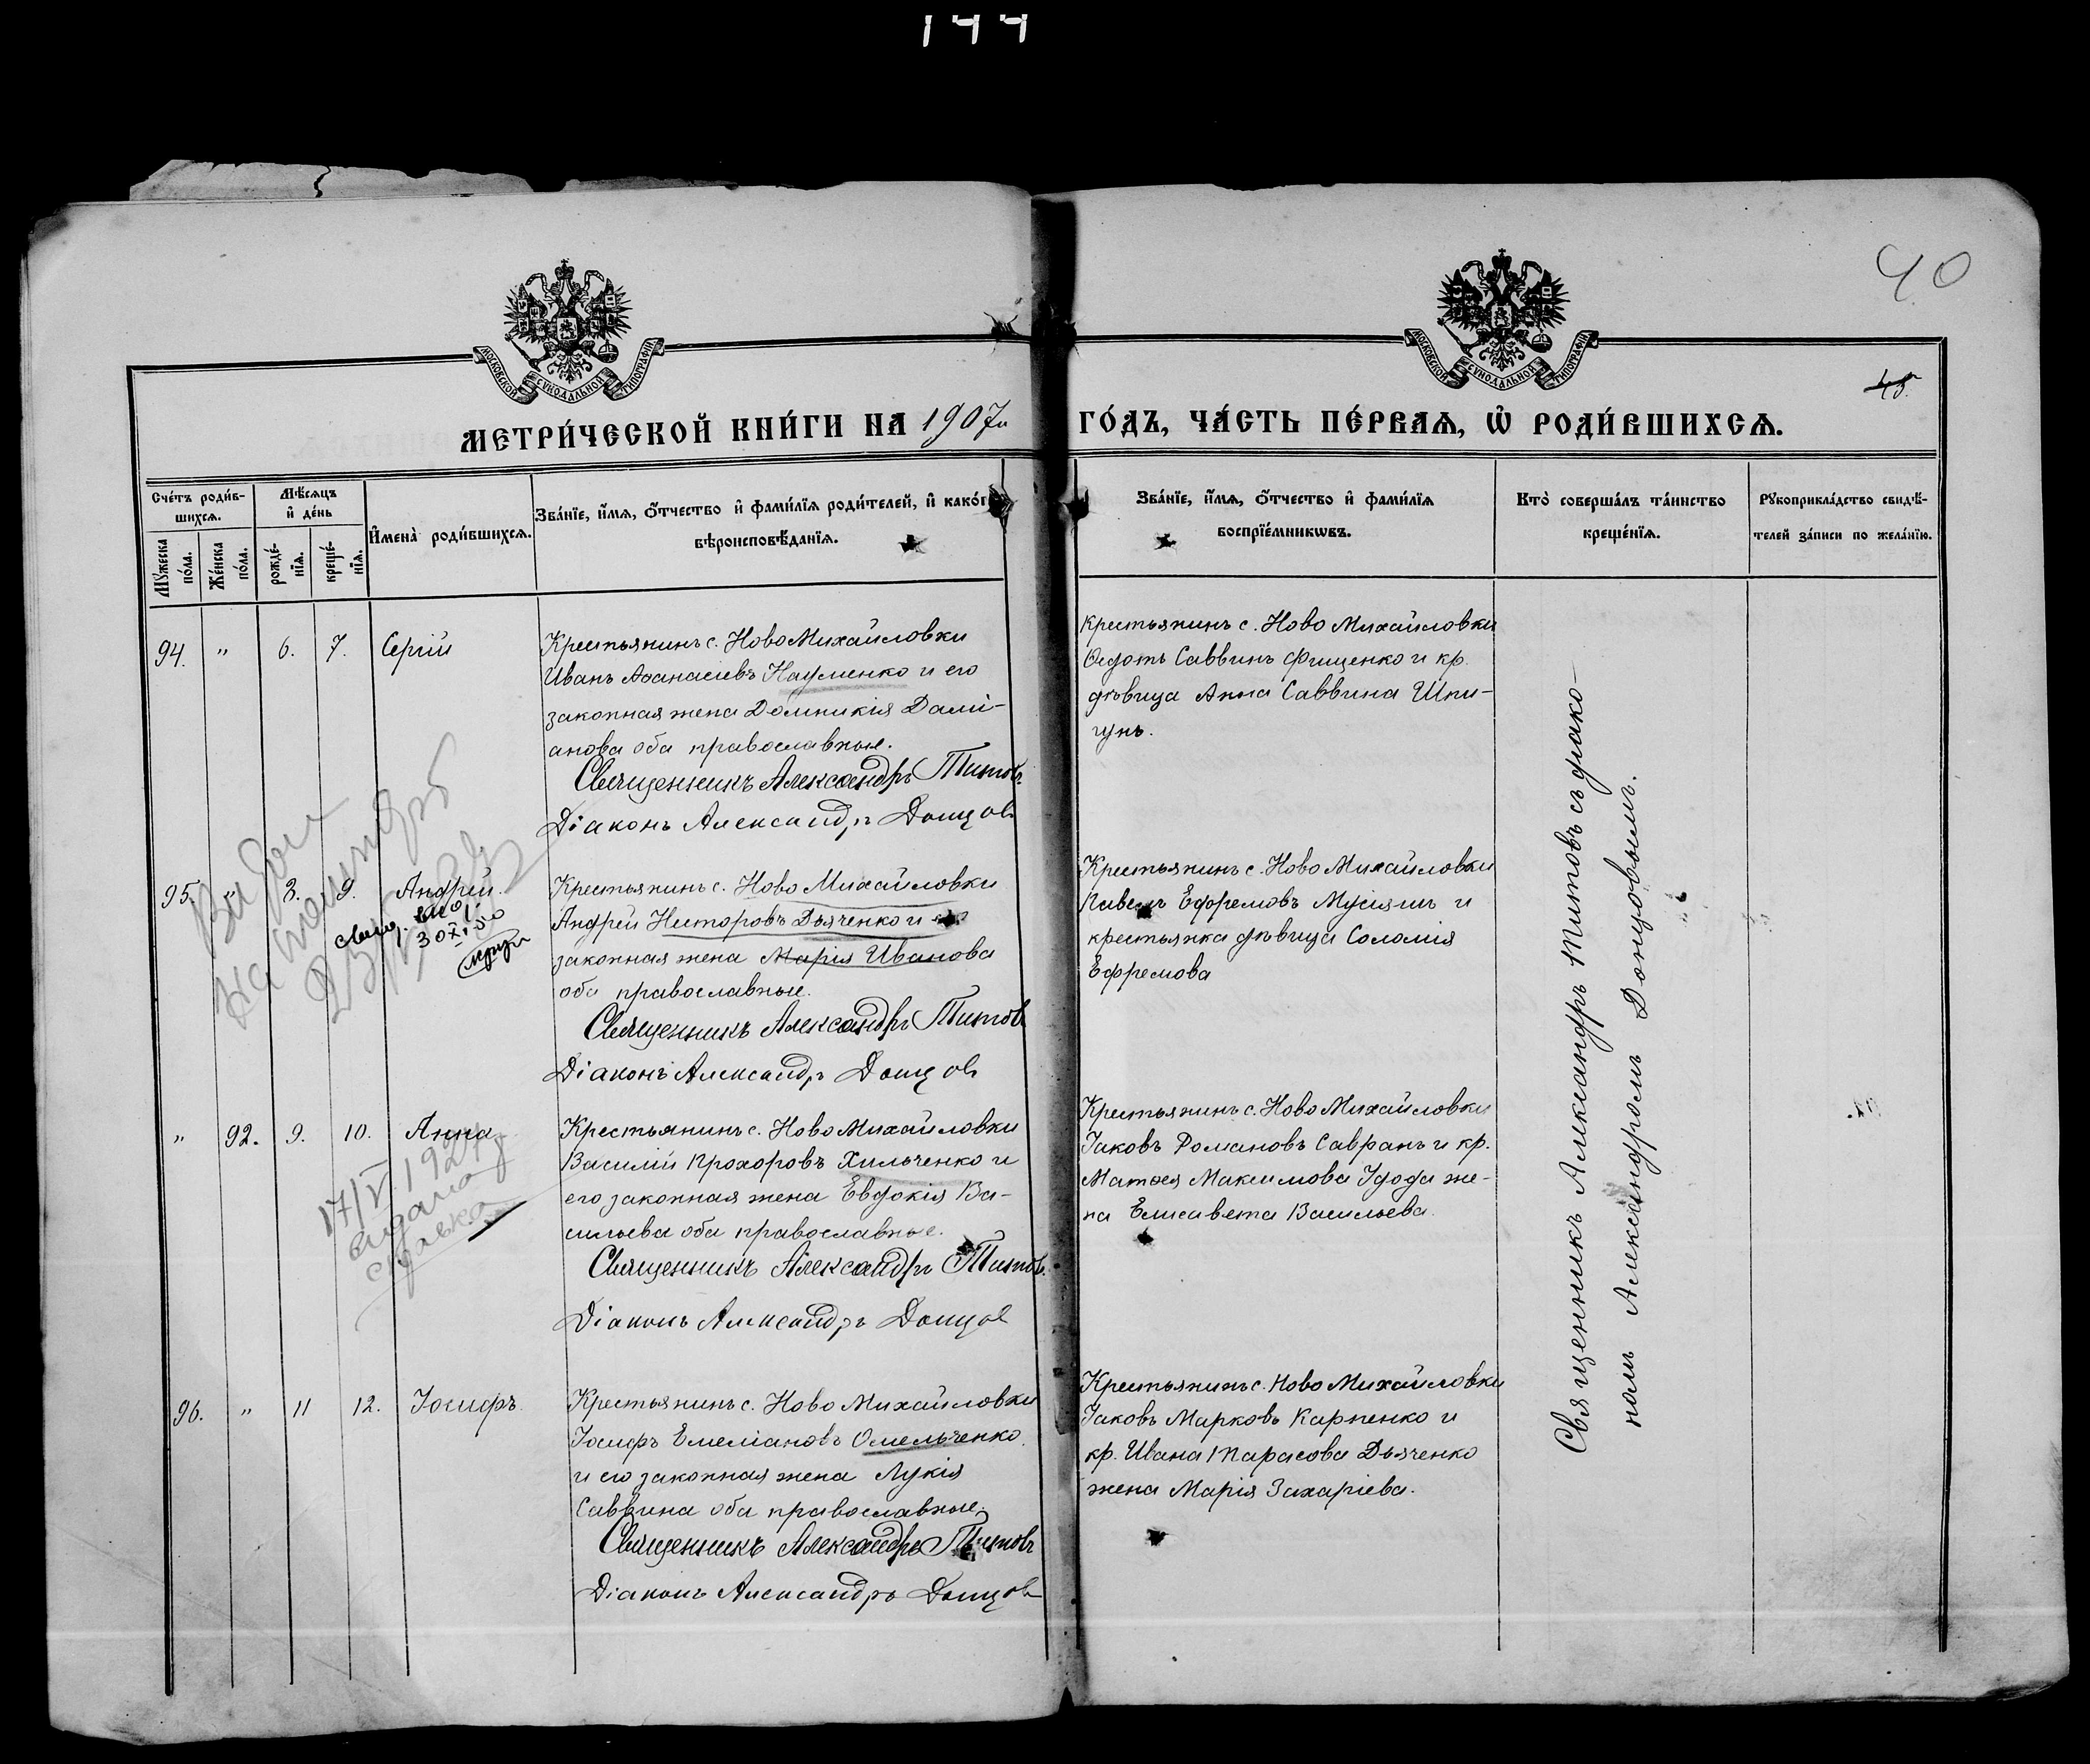 144
40
45.
МОСКОВСКОЙ СѴНОДАЛЬНОЙ ТИПОГРАФІИ
МОСКОВСКОЙ СѴНОДАЛЬНОЙ ТИПОГРАФІИ
МЕТРИ́ЧЕСКОЙ КНИ́ГИ НА 1907й ГО́ДЪ, ЧА́СТЬ ПЕ́РВАѦ, Ѡ҆ РОДИ́ВШИХСѦ.
Сче́тъ роди́в-
шихсѧ.
Мѣ́сѧцъ
и҆ де́нь
И҆мена̀ роди́вшихсѧ.
Зва́нїе, и҆́мѧ, ѻ҆́тчество и҆ фами́лїѧ роди́телей, и҆ како́г
вѣроисповѣ́данїѧ.
Мꙋ́жеска
по́ла.
Же́нска
по́ла.
рожде́-
нїѧ.
креще́-
нїѧ.
Зва́нїе, и҆́мѧ, ѻ҆́тчество и҆ фами́лїѧ
воспрїе́мникѡвъ.
Кто̀ соверша́лъ та́инство
креще́нїѧ.
Рꙋкоприкла́дство свидѣ́-
телей за́писи по жела́нїю.
94. " 6. 7. Сергій
Крестьянинъ с. Ново Михайловки
Иванъ Аѳанасіевъ Науменко и его
законная жена Домникія Дамі-
анова оба православные.
Священникъ Александръ Титовъ
Діаконъ Александръ Донцовъ
Крестьянинъ с. Ново Михайловки
Ѳедотъ Саввинъ Фищенко и кр.
дѣвица Анна Саввина Шпи-
гунъ.
95. " 8. 9. Андрей.
30 XI 50
Крестьянинъ с. Ново Михайловки
Андрей Несторовъ Дьяченко и его
законная жена Марія Иванова
оба православные.
Священникъ Александръ Титовъ
Діаконъ Александръ Донцовъ
Крестьянинъ с. Ново Михайловки
Павелъ Ефремовъ Мусіятъ и
крестьянка дѣвица Соломія
Ефремова
" 92. 9. 10. Анна
17/V. 192
Крестьянинъ с. Ново Михайловки
Василій Прохоровъ Хильченко и
его законная жена Евдокія Ва-
сильева оба православные.
Священникъ Александръ Титовъ
Діаконъ Александръ Донцовъ
Крестьянинъ с. Ново Михайловки
Іаковъ Романовъ Савранъ и кр.
Матѳея Максимова Удода же-
на Елисавета Васильева.
96. " 11 12. Іосифъ.
Крестьянинъ с. Ново Михайловки
Іосифъ Емеліановъ Омельченко
и его законная жена Лукія
Саввина оба православные.
Священникъ Александръ Титовъ
Діаконъ Александръ Донцовъ
Крестьянинъ с. Ново Михайловки
Іаковъ Марковъ Карпенко и
кр. Ивана Тарасова Дьяченко
жена Марія Захаріева.
Священникъ Александръ Титовъ съ діако-
номъ Александромъ Донцовымъ.